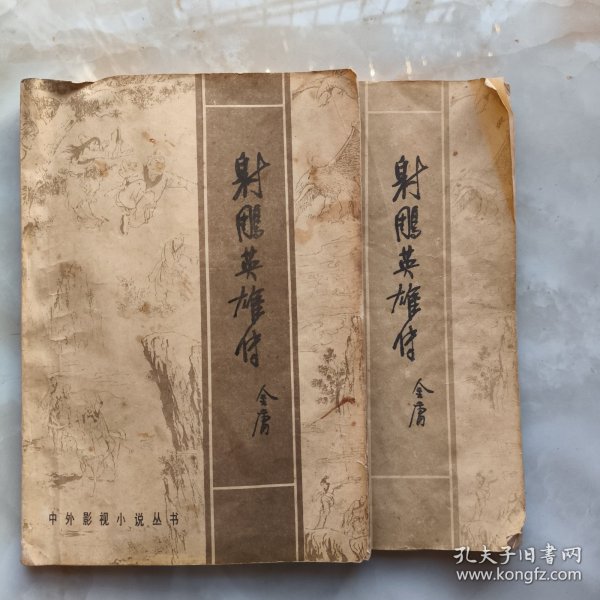 射鵰英雄传
金庸
中外影视小说丛书
射鵰英雄传
金庸
孔夫子旧书网
www.kongfz.com